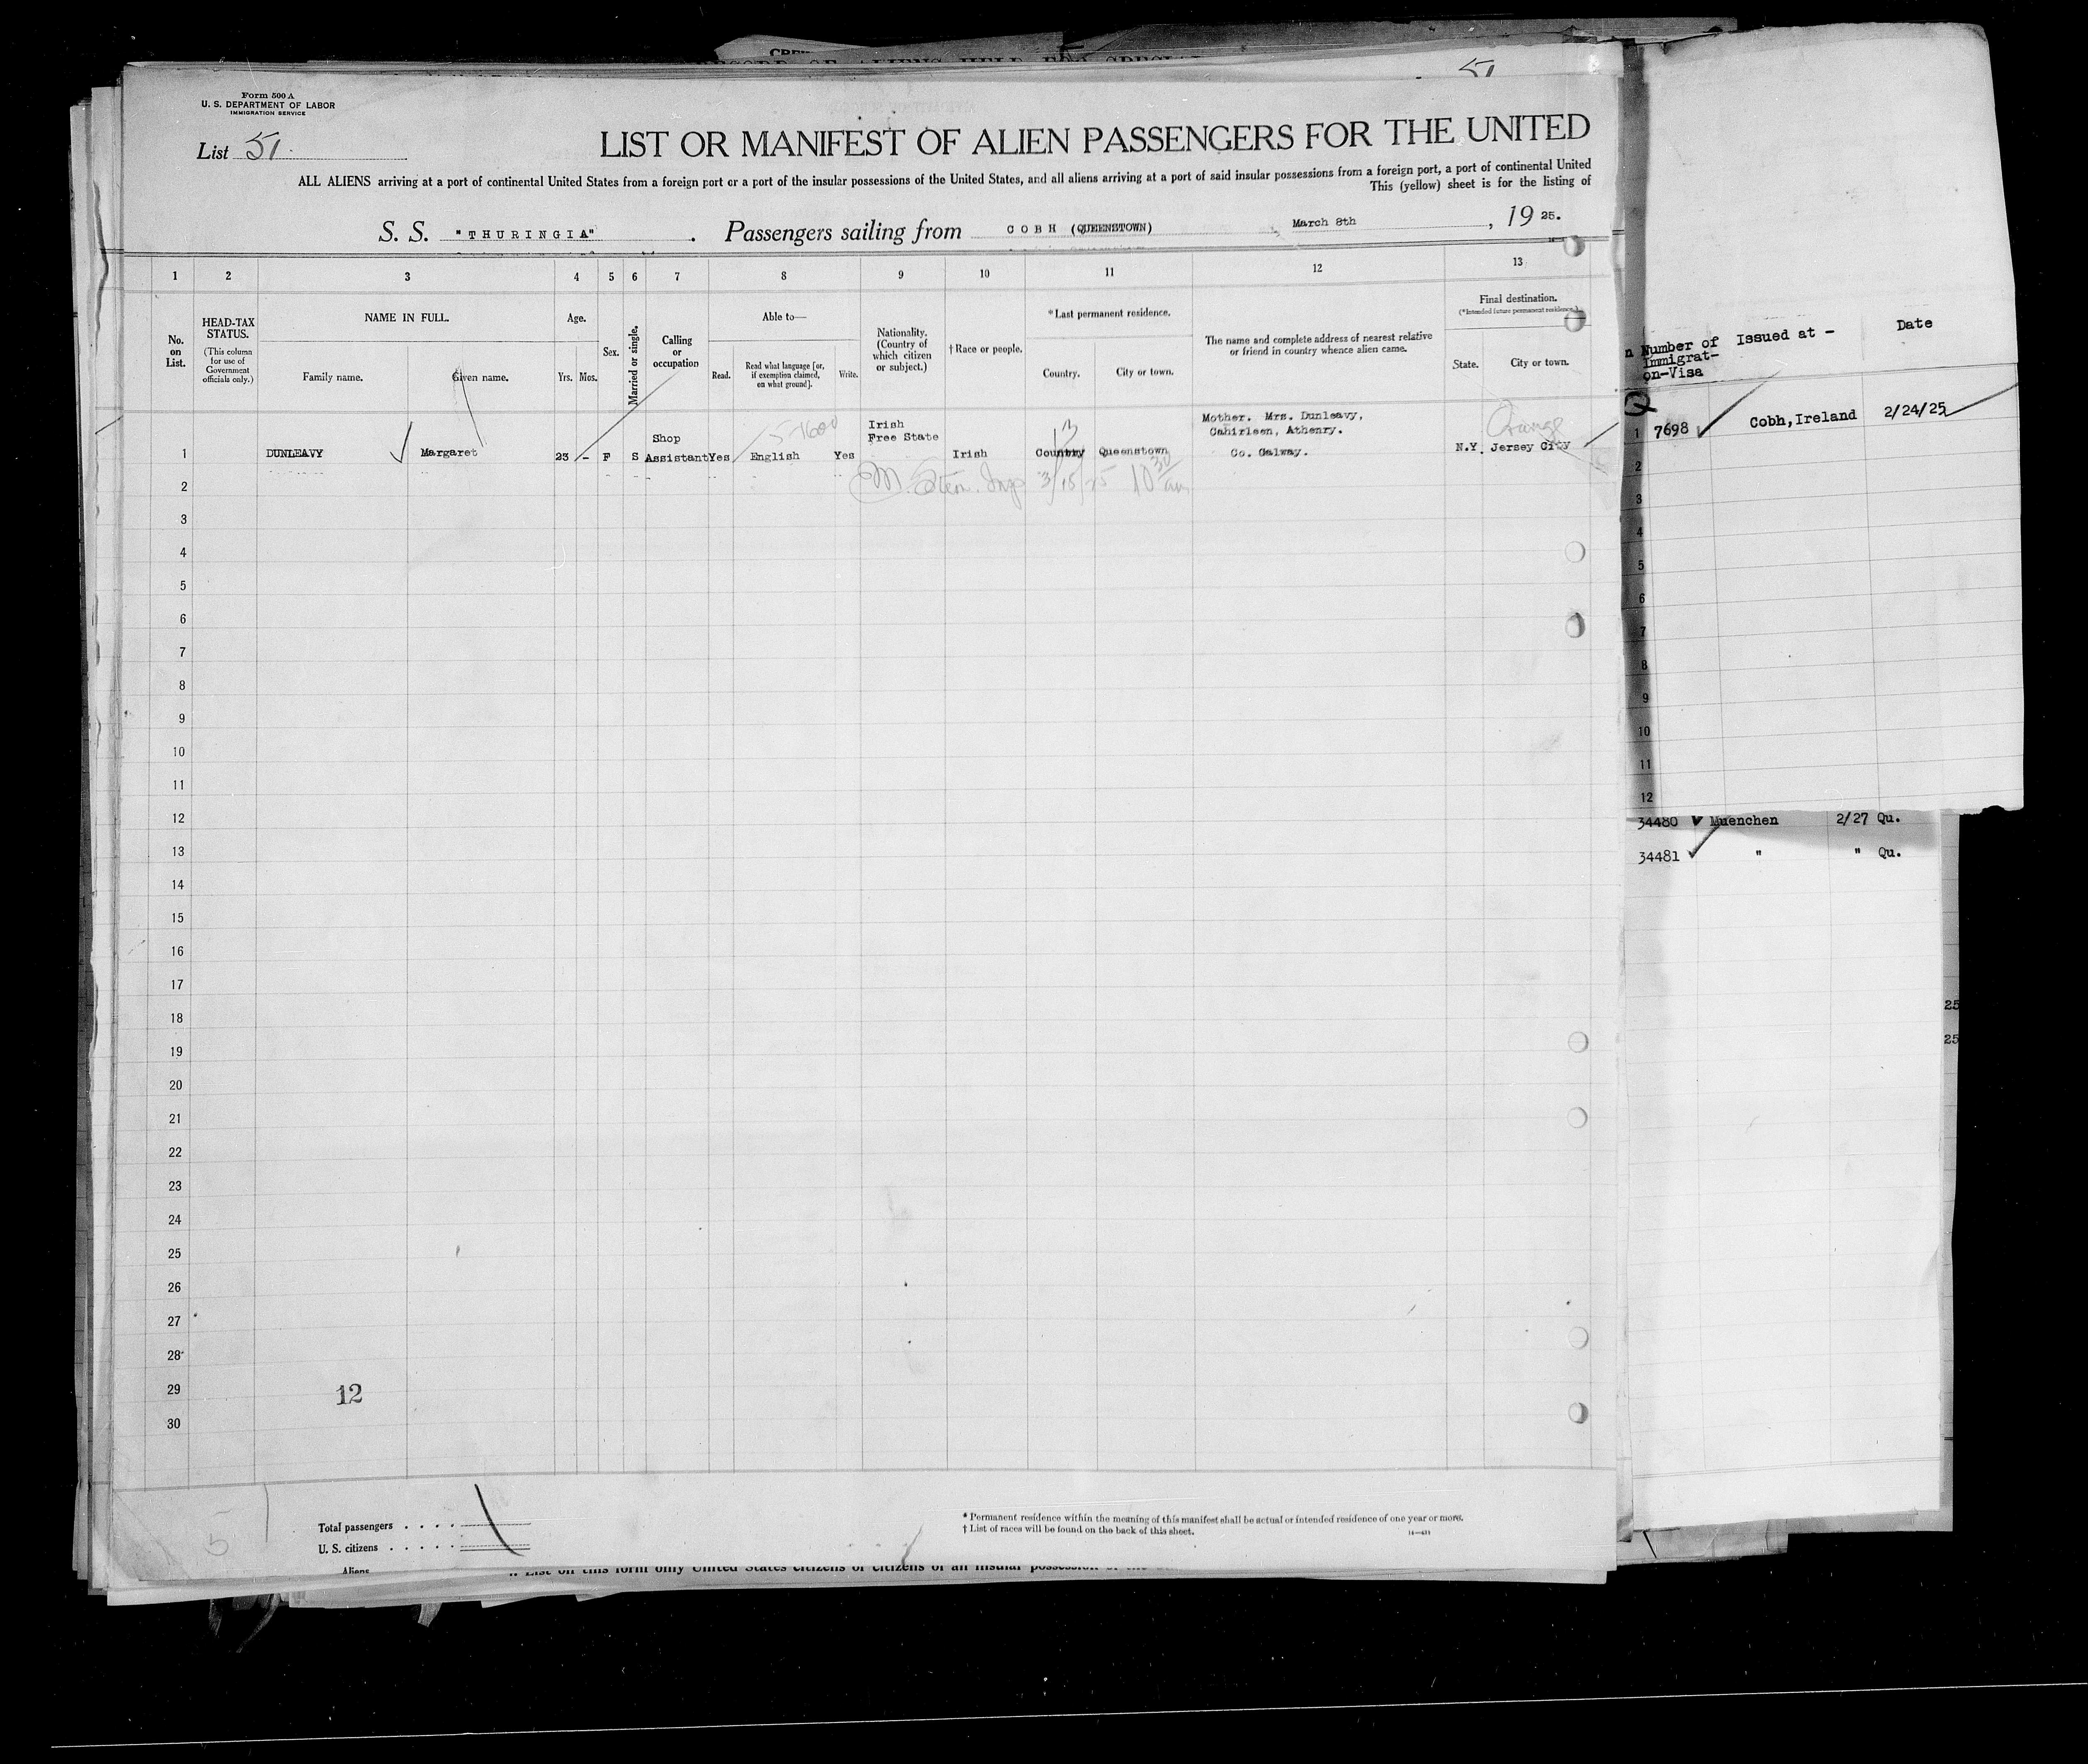 Form 500 A
U. S. DEPARTMENT OF LABOR
IMMIGRATION SERVICE
51
List 51.
LIST OR MANIFEST OF ALIEN PASSENGERS FOR THE UNITED
ALL ALIENS arriving at a port of continental United States from a foreign port or a port of the insular possessions of the United States, and all aliens arriving at a port of said insular possessions from a foreign port, a port of continental United
This (yellow) sheet is for the listing of
S. S. "THURINGIA" . Passengers sailing from COBH (QUEENSTOWN) March 8th , 19 25.
1 2 3 4 5 6 7 8 9 10 11 12 13
No. on List.
HEAD-TAX STATUS.
(This column for use of Government officials only.)
NAME IN FULL.
Family name. Given name.
Age.
Yrs. Mos.
Sex.
Married or single.
Calling or occupation
Able to—
Read. Read what language [or, if exemption claimed, on what ground]. Write.
Nationality. (Country of which citizen or subject.)
†Race or people.
*Last permanent residence.
Country. City or town.
The name and complete address of nearest relative or friend in country whence alien came.
Final destination.
(*Intended future permanent residence.)
State. City or town.
Number of Immigrat-on-Visa
Issued at -
Date
1 DUNLEAVY Margaret 23 - F S Shop Assistant Yes English Yes Irish Free State Irish Country Queenstown Mother. Mrs. Dunleavy, Cahirleen, Athenry. Co. Galway. N.Y. Jersey City
Orange
3/15/25 10 30 am
1 7698 Cobh,Ireland 2/24/25
2
3
4
5
6
7
8
9
10
11
12
13
14
15
16
17
18
19
20
21
22
23
24
25
26
27
28
29
30
12
2
3
4
5
6
7
8
9
10
11
12
34480 Muenchen 2/27 Qu.
34481 " " Qu.
25
25
5
Total passengers . . . .
U. S. citizens . . . . .
Aliens
* Permanent residence within the meaning of this manifest shall be actual or intended residence of one year or more.
† List of races will be found on the back of this sheet.